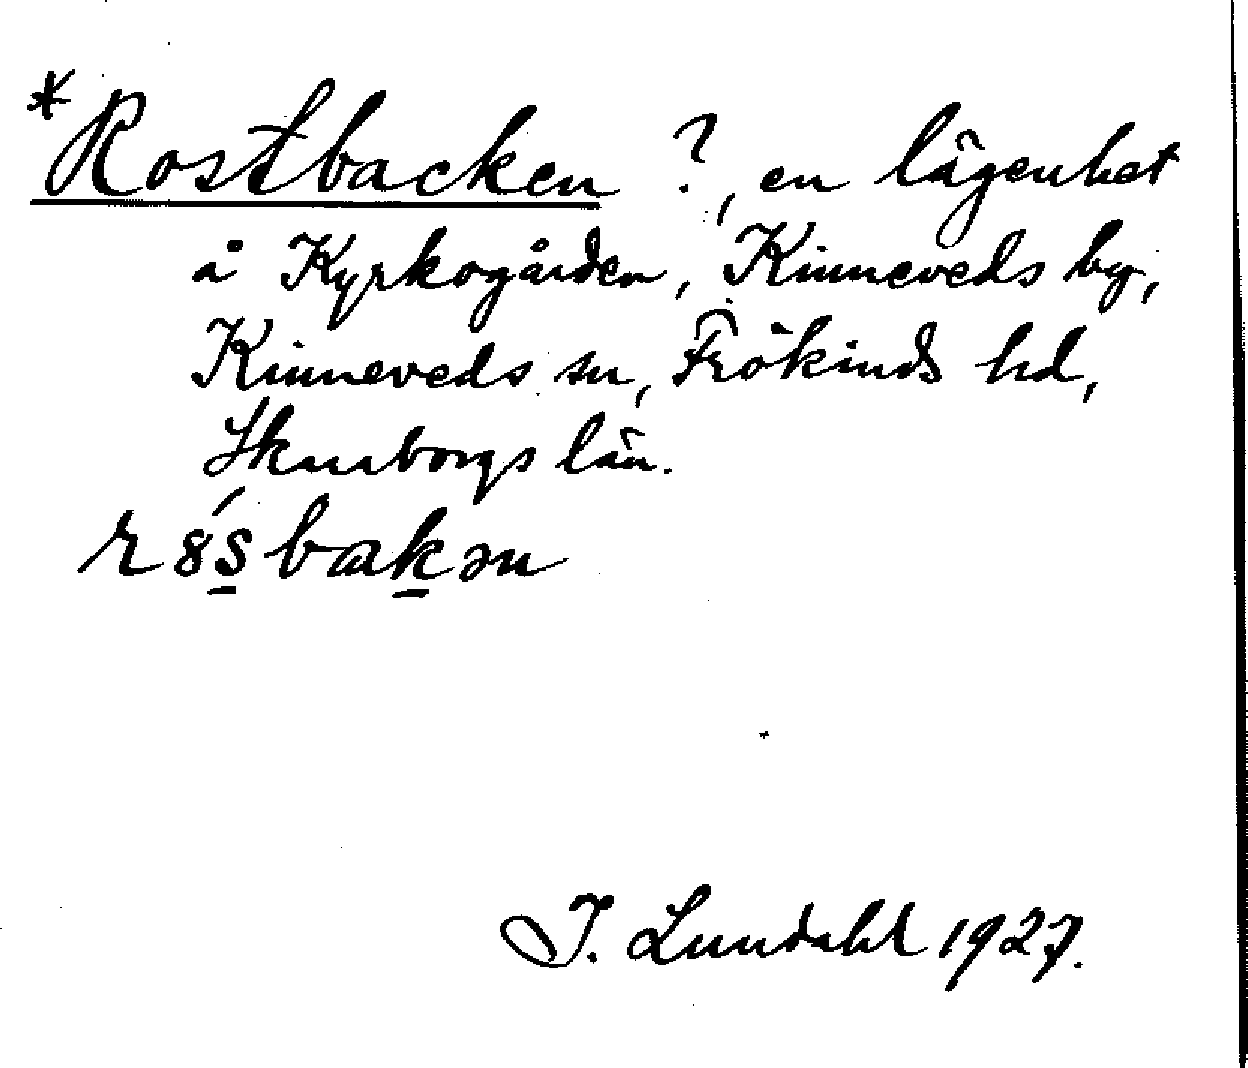 *Rostbacken ?, en lägenhet
å Kyrkogården, Kinneveds by,
Kinneveds sn, Frökinds hd,
Skaraborgs län.
r8´s̲bak̲ən
I. Lundahl 1927.